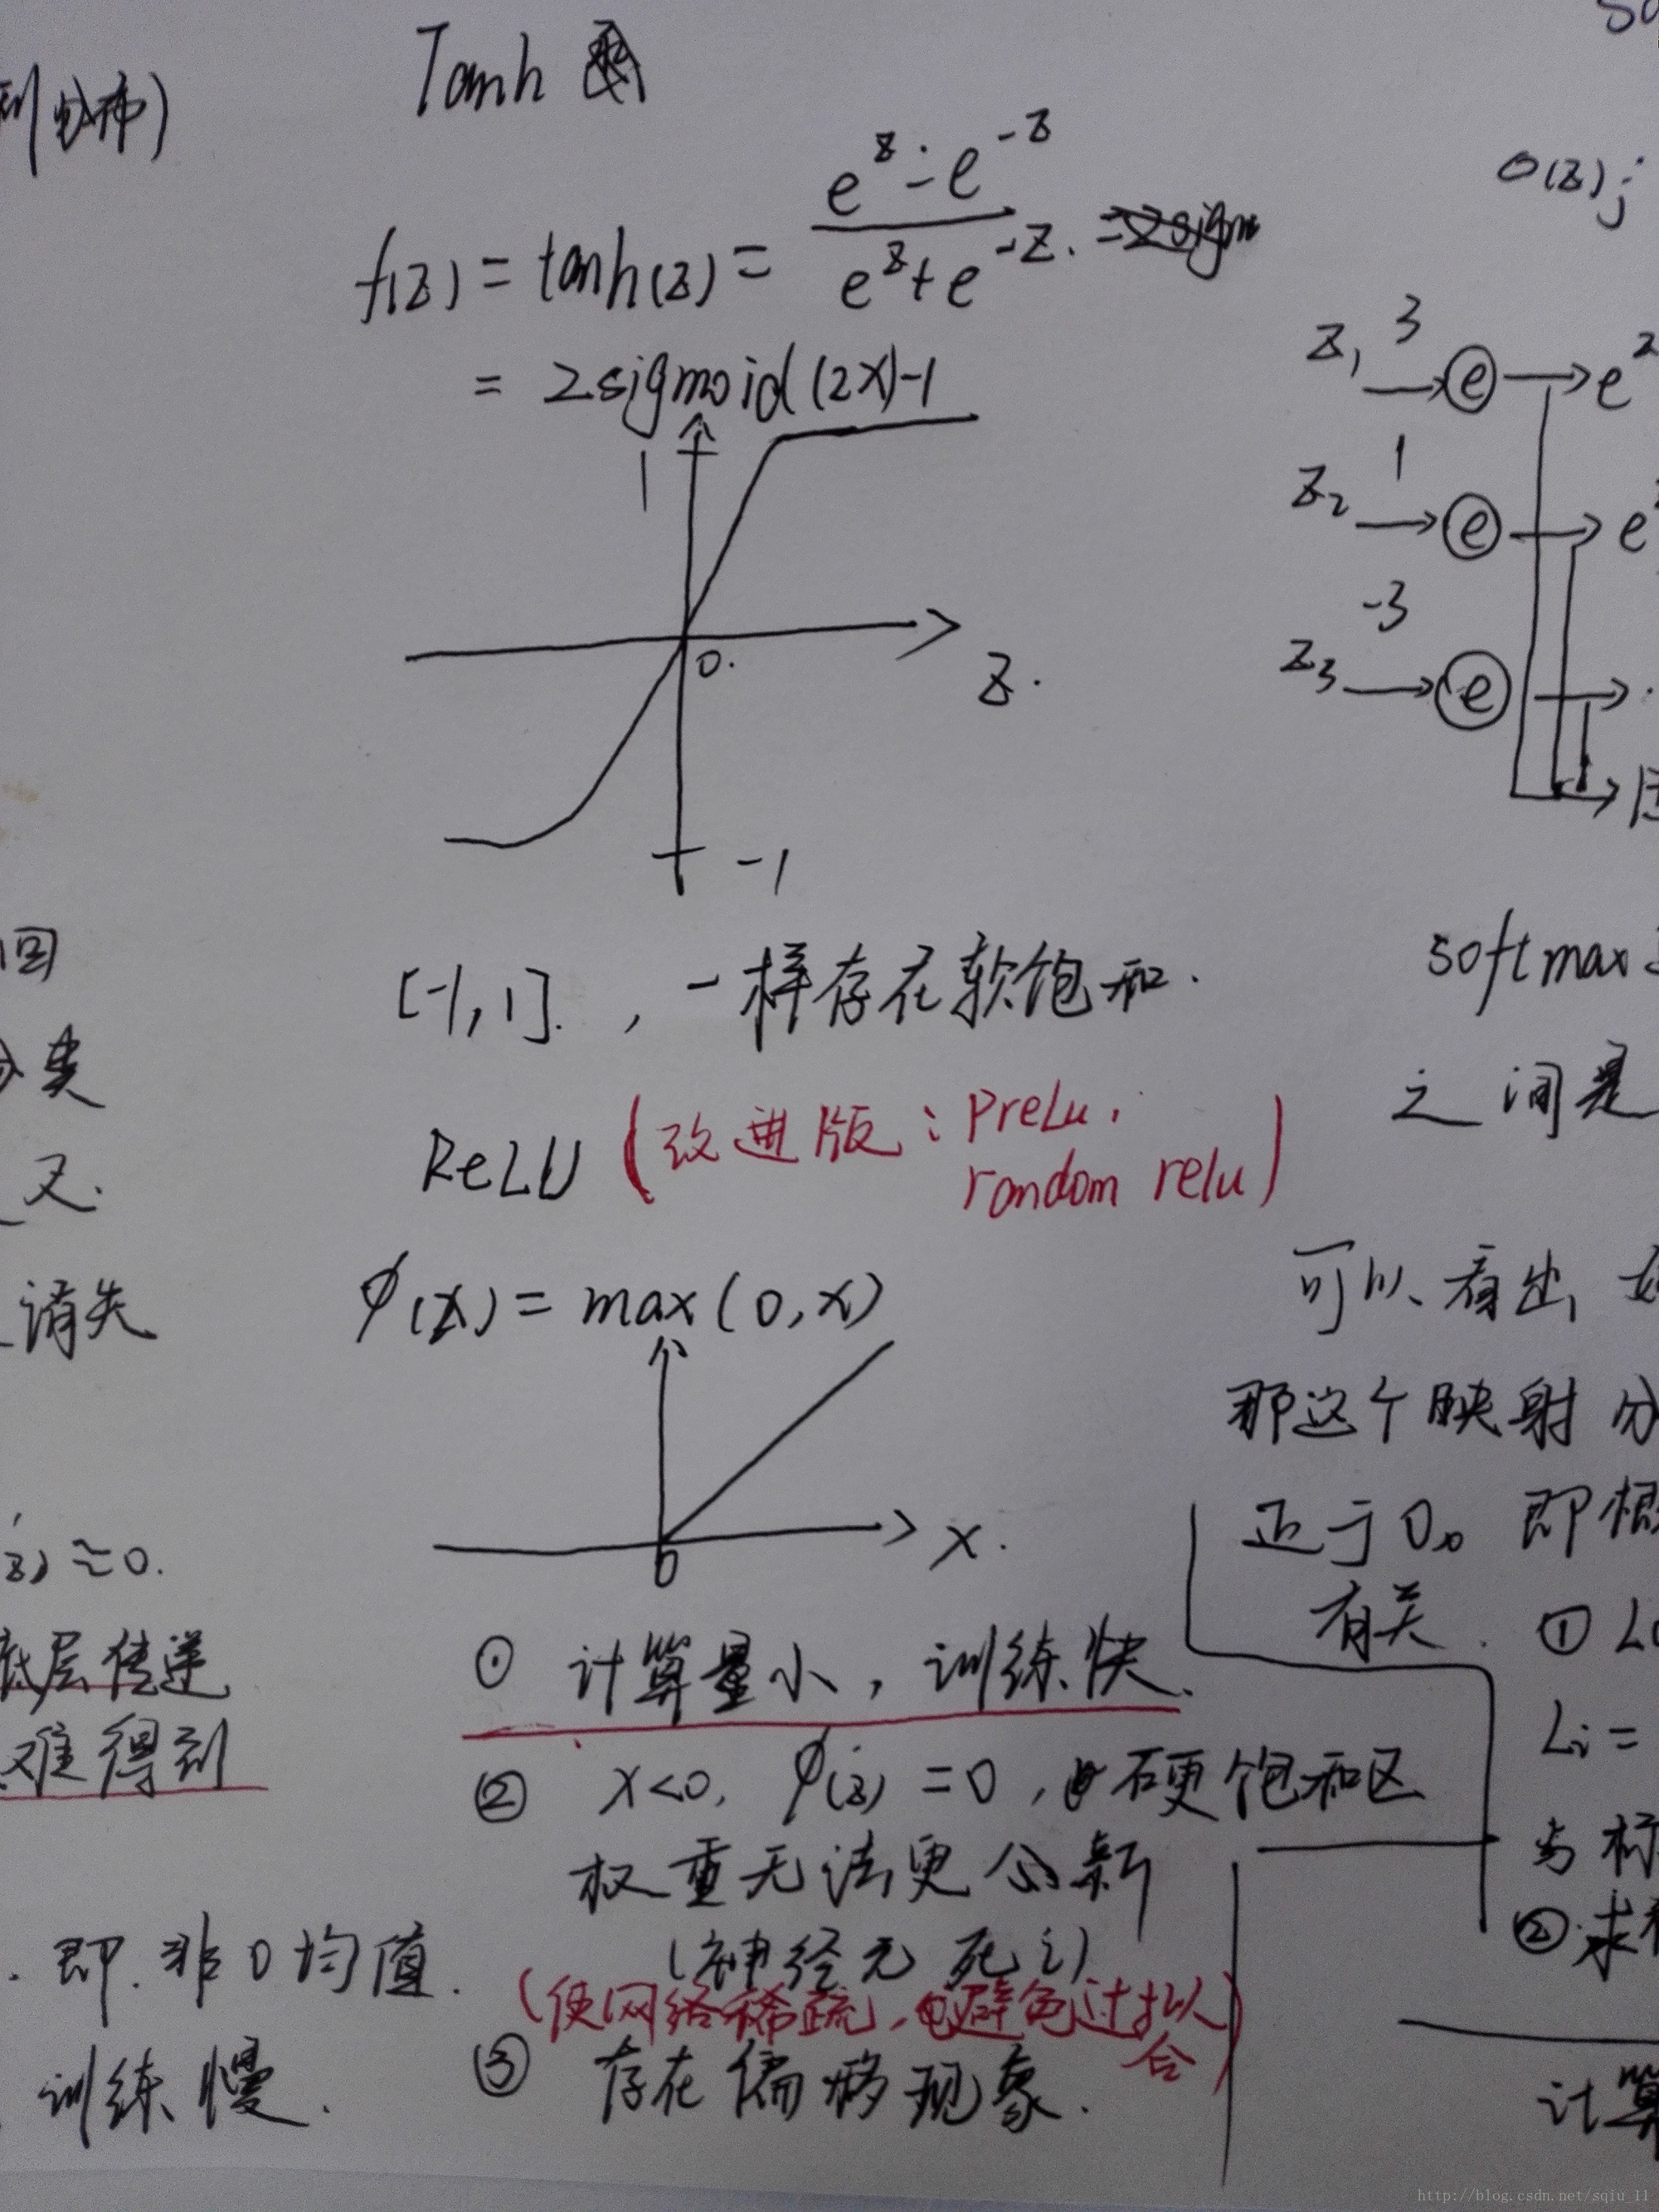 Tanh
f(z) = tanh(z) = (e^z - e^-z) / (e^z + e^-z).
= 2sigmoid(2x)-1
1
0.
z.
-1
[-1,1]. ,一样存在软饱和.
ReLU (改进版:PreLu,
random relu)
φ(x) = max(0,x)
0
x.
① 计算量小,训练快.
② x<0, φ(z) = 0, 硬饱和区
权重无法更新
(神经元死亡)
(使网络稀疏,避免过拟
合)
③ 存在偏移现象.
回
类
又.
消失
≈0.
底层传递
难得到
. 即.非0均值.
训练慢.
σ(z)j
z1 3 e e
z2 1 e e
z3 -3 e
softmax
之间是
可以看出,
那这个映射分
近于0。即
有关.
①
Li =
与标
②求
计算
http://blog.csdn.net/sqiu_11